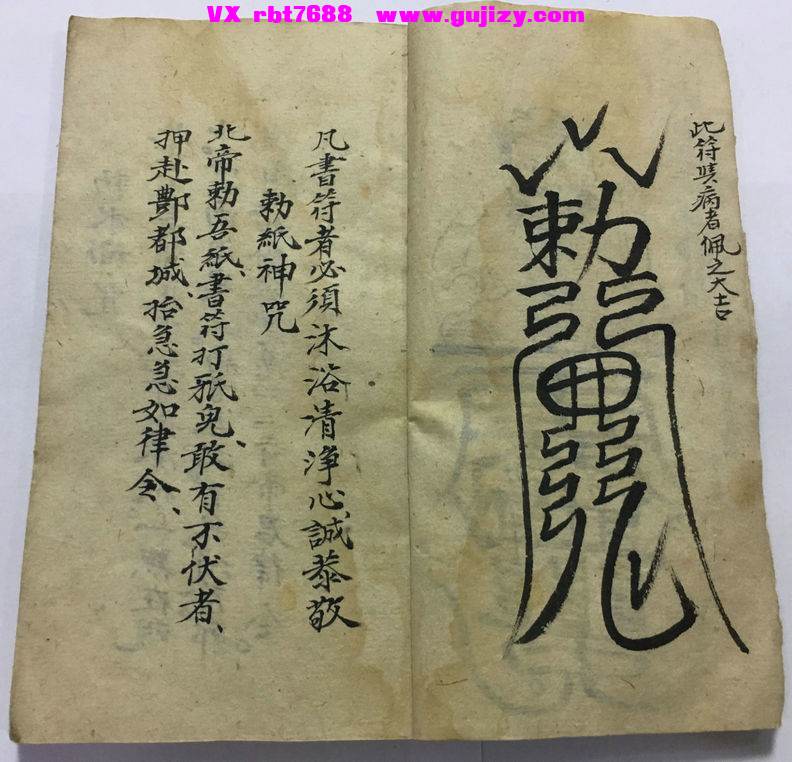 VX rbt7688 www.gujizy.com
此符病者佩之大吉
勅
凡書符者必須沐浴清净心誠恭敬
勅紙神咒
北帝勅吾紙、書符打邪鬼、敢有不伏者、
押赴酆都城、急急如律令、